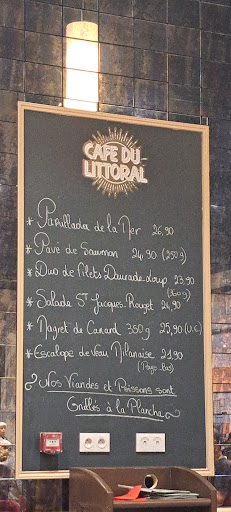 CAFE DU
LITTORAL
* Parillada de la Mer 26,90
* Pavé de Saumon 24,90 (250g)
* Duo de filets Daurade-Loup 23,90
(350g)
* Salada St Jacques-Rouget 24,90
* Magret de Canard 350g 25,90 (U.E)
* Escalope de Veau Milanaise 21.90
(Pays Bas)
Nos Viandes et Poissons sont
Grillés à la Plancha